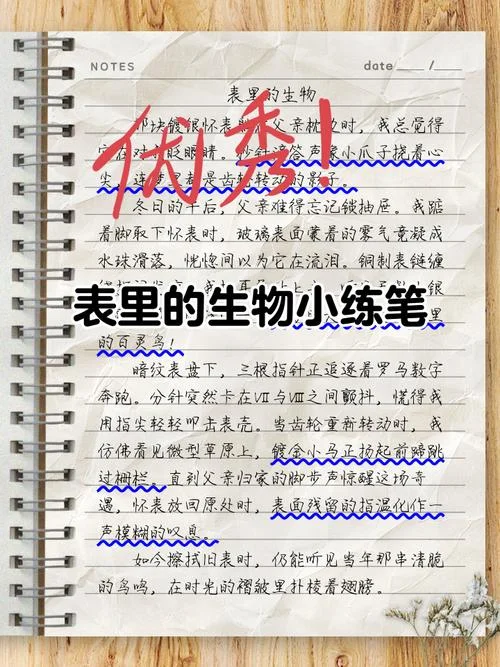 NOTES
date ____ / ____
表里的生物
优秀!
父亲枕边时，我总觉得
它在对我眨眼睛。秒针滴答声像小爪子挠着心
尖，连梦里都是齿轮转动的影子。
冬日的午后，父亲难得忘记锁抽屉。我踮
着脚取下怀表时，玻璃表面蒙着的雾气竟凝成
水珠滑落，恍惚间以为它在流泪。铜制表链缠
表里的生物小练笔
的百灵鸟！
暗纹表盘下，三根指针正追逐着罗马数字
奔跑。分针突然卡在Ⅶ与Ⅷ之间颤抖，慌得我
用指尖轻轻叩击表壳。当齿轮重新转动时，我
仿佛看见微型草原上，镀金小马正扬起前蹄跳
过栅栏。直到父亲归家的脚步声惊醒这场奇
遇，怀表放回原处时，表面残留的指温化作一
声模糊的叹息。
如今擦拭旧表时，仍能听见当年那串清脆
的鸟鸣，在时光的褶皱里扑棱着翅膀。